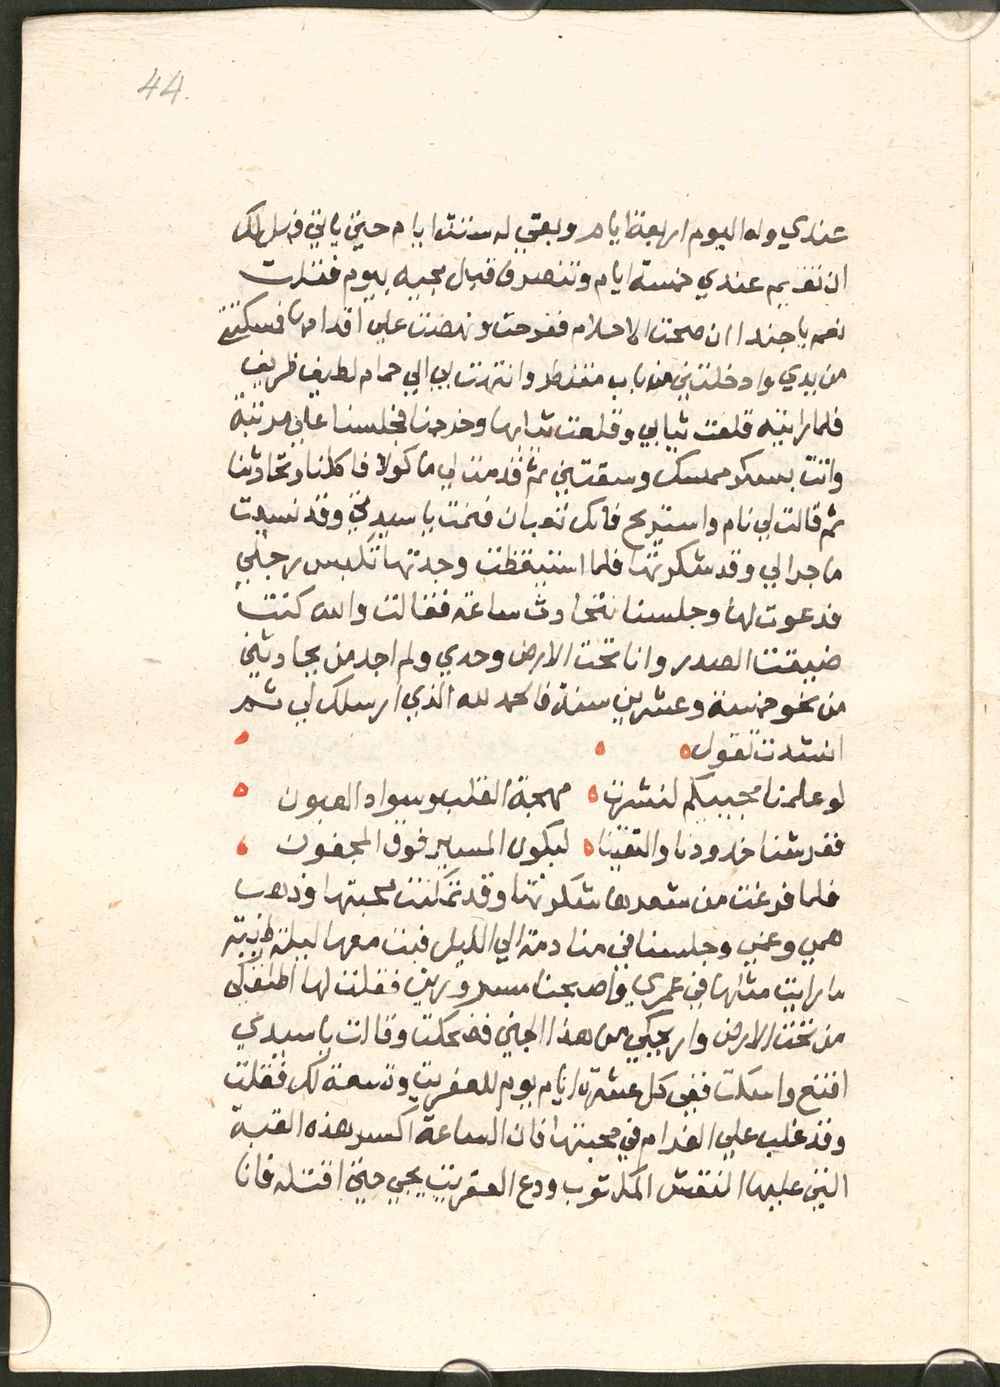 44.
عندي وله اليوم اربعة ايام وبقي له ستت ايام حتي ياتي فهل لك
ان تقيم عندي خمسة ايام وتنصرف قبل مجيه بيوم فقلت
نعم يا حبذا ان صحت الاحلام ففرحت ونهضت علي اقدامها فمسكتني
من يدي وادخلتني من باب مقنطر وانتهت بي الي حمام لطيف ظريف
فلما رايته قلعت ثيابي وقلعت ثيابها وخرجنا فجلسنا علي مرتبة
واتت بسكر ممسك وسقتني ثم قدمت لي ماكولا فاكلنا وتحادثنا
ثم قالت لي نام واستريح فانك تعبان فنمت يا سيدتي وقد نسيت
ما جرا لي وقد شكرتها فلما استيقظت وجدتها تكبس رجلي
فدعوت لها وجلسنا نتحادث ساعة فقالت والله كنت
ضيقت الصدر وانا تحت الارض وحدي ولم اجد من يحادثني
من نحو خمسة وعشرين سنة فالحمد لله الذي ارسلك لي ثم
انشدت تقول
لو علمنا مجييكم لنشرنا مهجة القلب وسواد العيون
ففرشنا خدودنا والتقينا ليكون المسير فوق الجفون
فلما فرغت من شعرها شكرتها وقد تمكنت محبتها وذهب
همي وغمي وجلسنا في منادمة الي الليل فبت معها ليلة
ما رايت مثلها في عمري واصبحنا مسرورين فقلت لها اطلعكي
من تحت الارض واريحكي من هذا الجني فضحكت وقالت يا سيدي
اقنع واسكت ففي كل عشرة ايام يوم للعفريت وتسعة لك فقلت
وقد غلب علي الغرام في محبتها فان الساعة اكسر هذه القبة
التي عليها النقش المكتوب ودع العفريت يجي حتي اقتله فانا